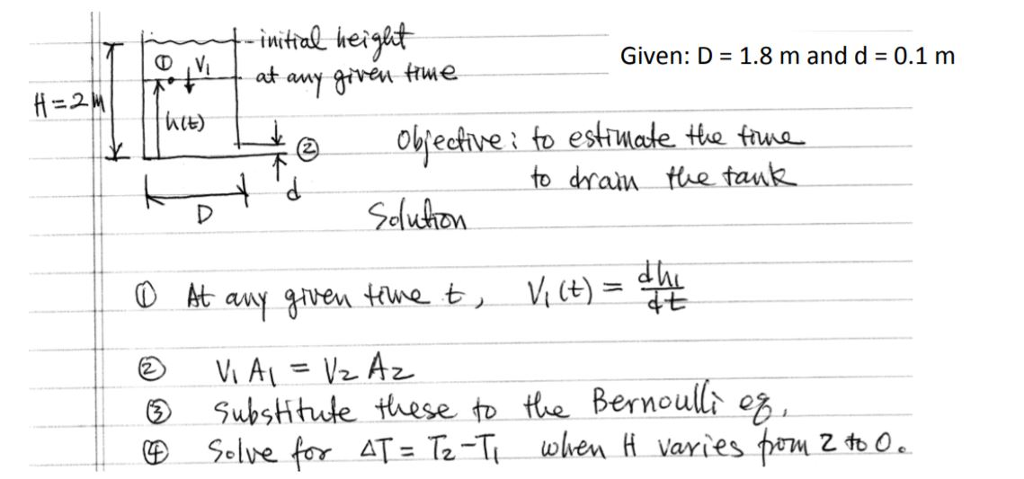 - initial height
Given: D = 1.8 m and d = 0.1 m
① V₁
at any given time
H = 2 M
h(t)
②
Objective: to estimate the time
to drain the tank
d
D
Solution
① At any given time t, V₁(t) = dh₁/dt
② V₁ A₁ = V₂ A₂
③ Substitute these to the Bernoulli eq,
④ Solve for ΔT = T₂ - T₁ when H varies from 2 to 0.